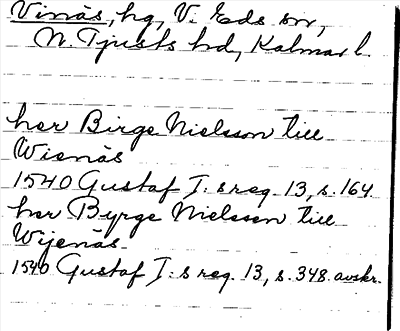 Vinäs, hg, V. Eds sn,
N. Tjusts hd, Kalmar l.
her Birge Nielsson till
Wienäs
1540 Gustaf I:s reg. 13, s. 164.
her Byrge Nielssen till
Wijenäs.
1540 Gustaf I:s reg. 13, s. 348. avskr.